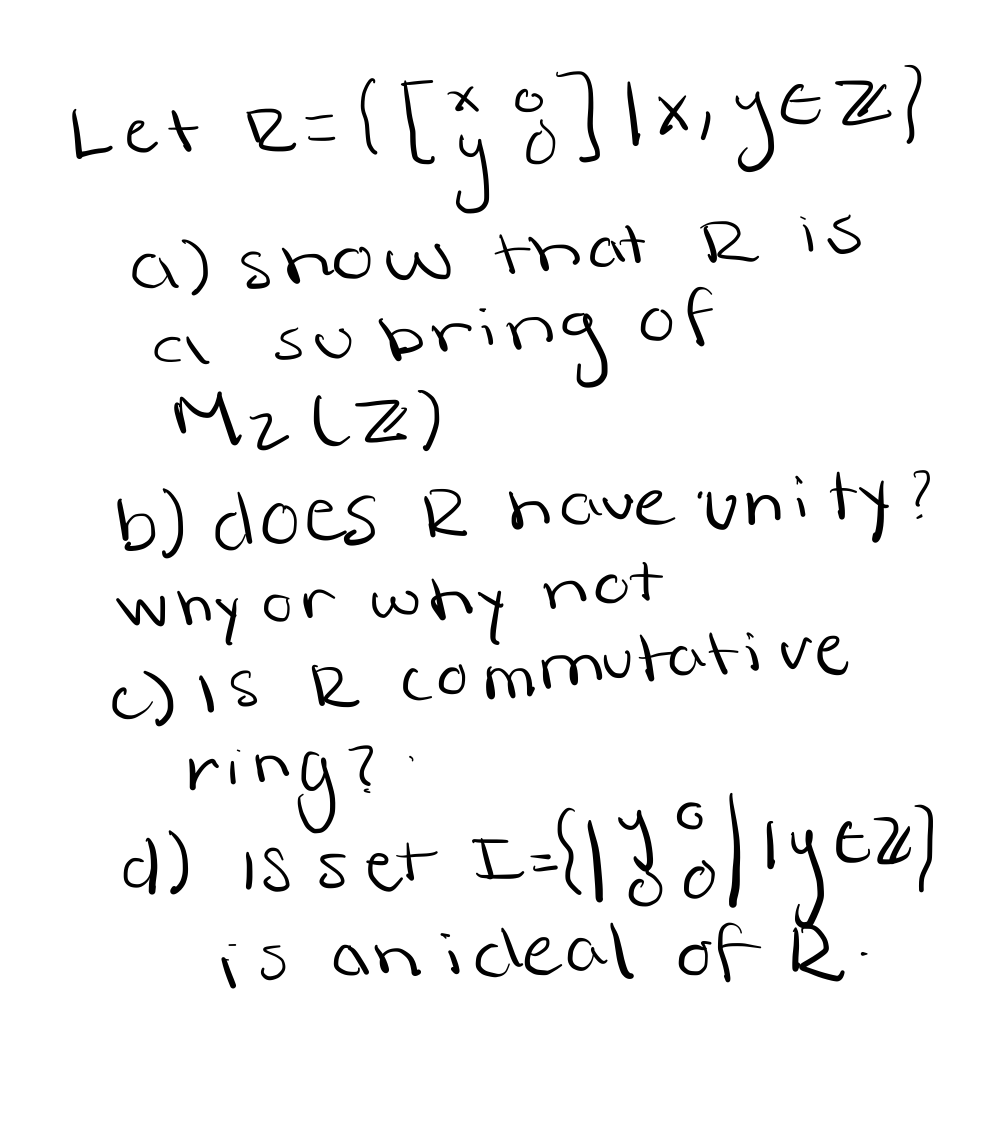 Let R={[x 0
y 0] | x, y ∈ ℤ}
a) show that R is
a subring of
M₂(ℤ)
b) does R have unity?
why or why not
c) is R commutative
ring?
d) is set I={|y 0
0 0| | y ∈ ℤ}
is an ideal of R.